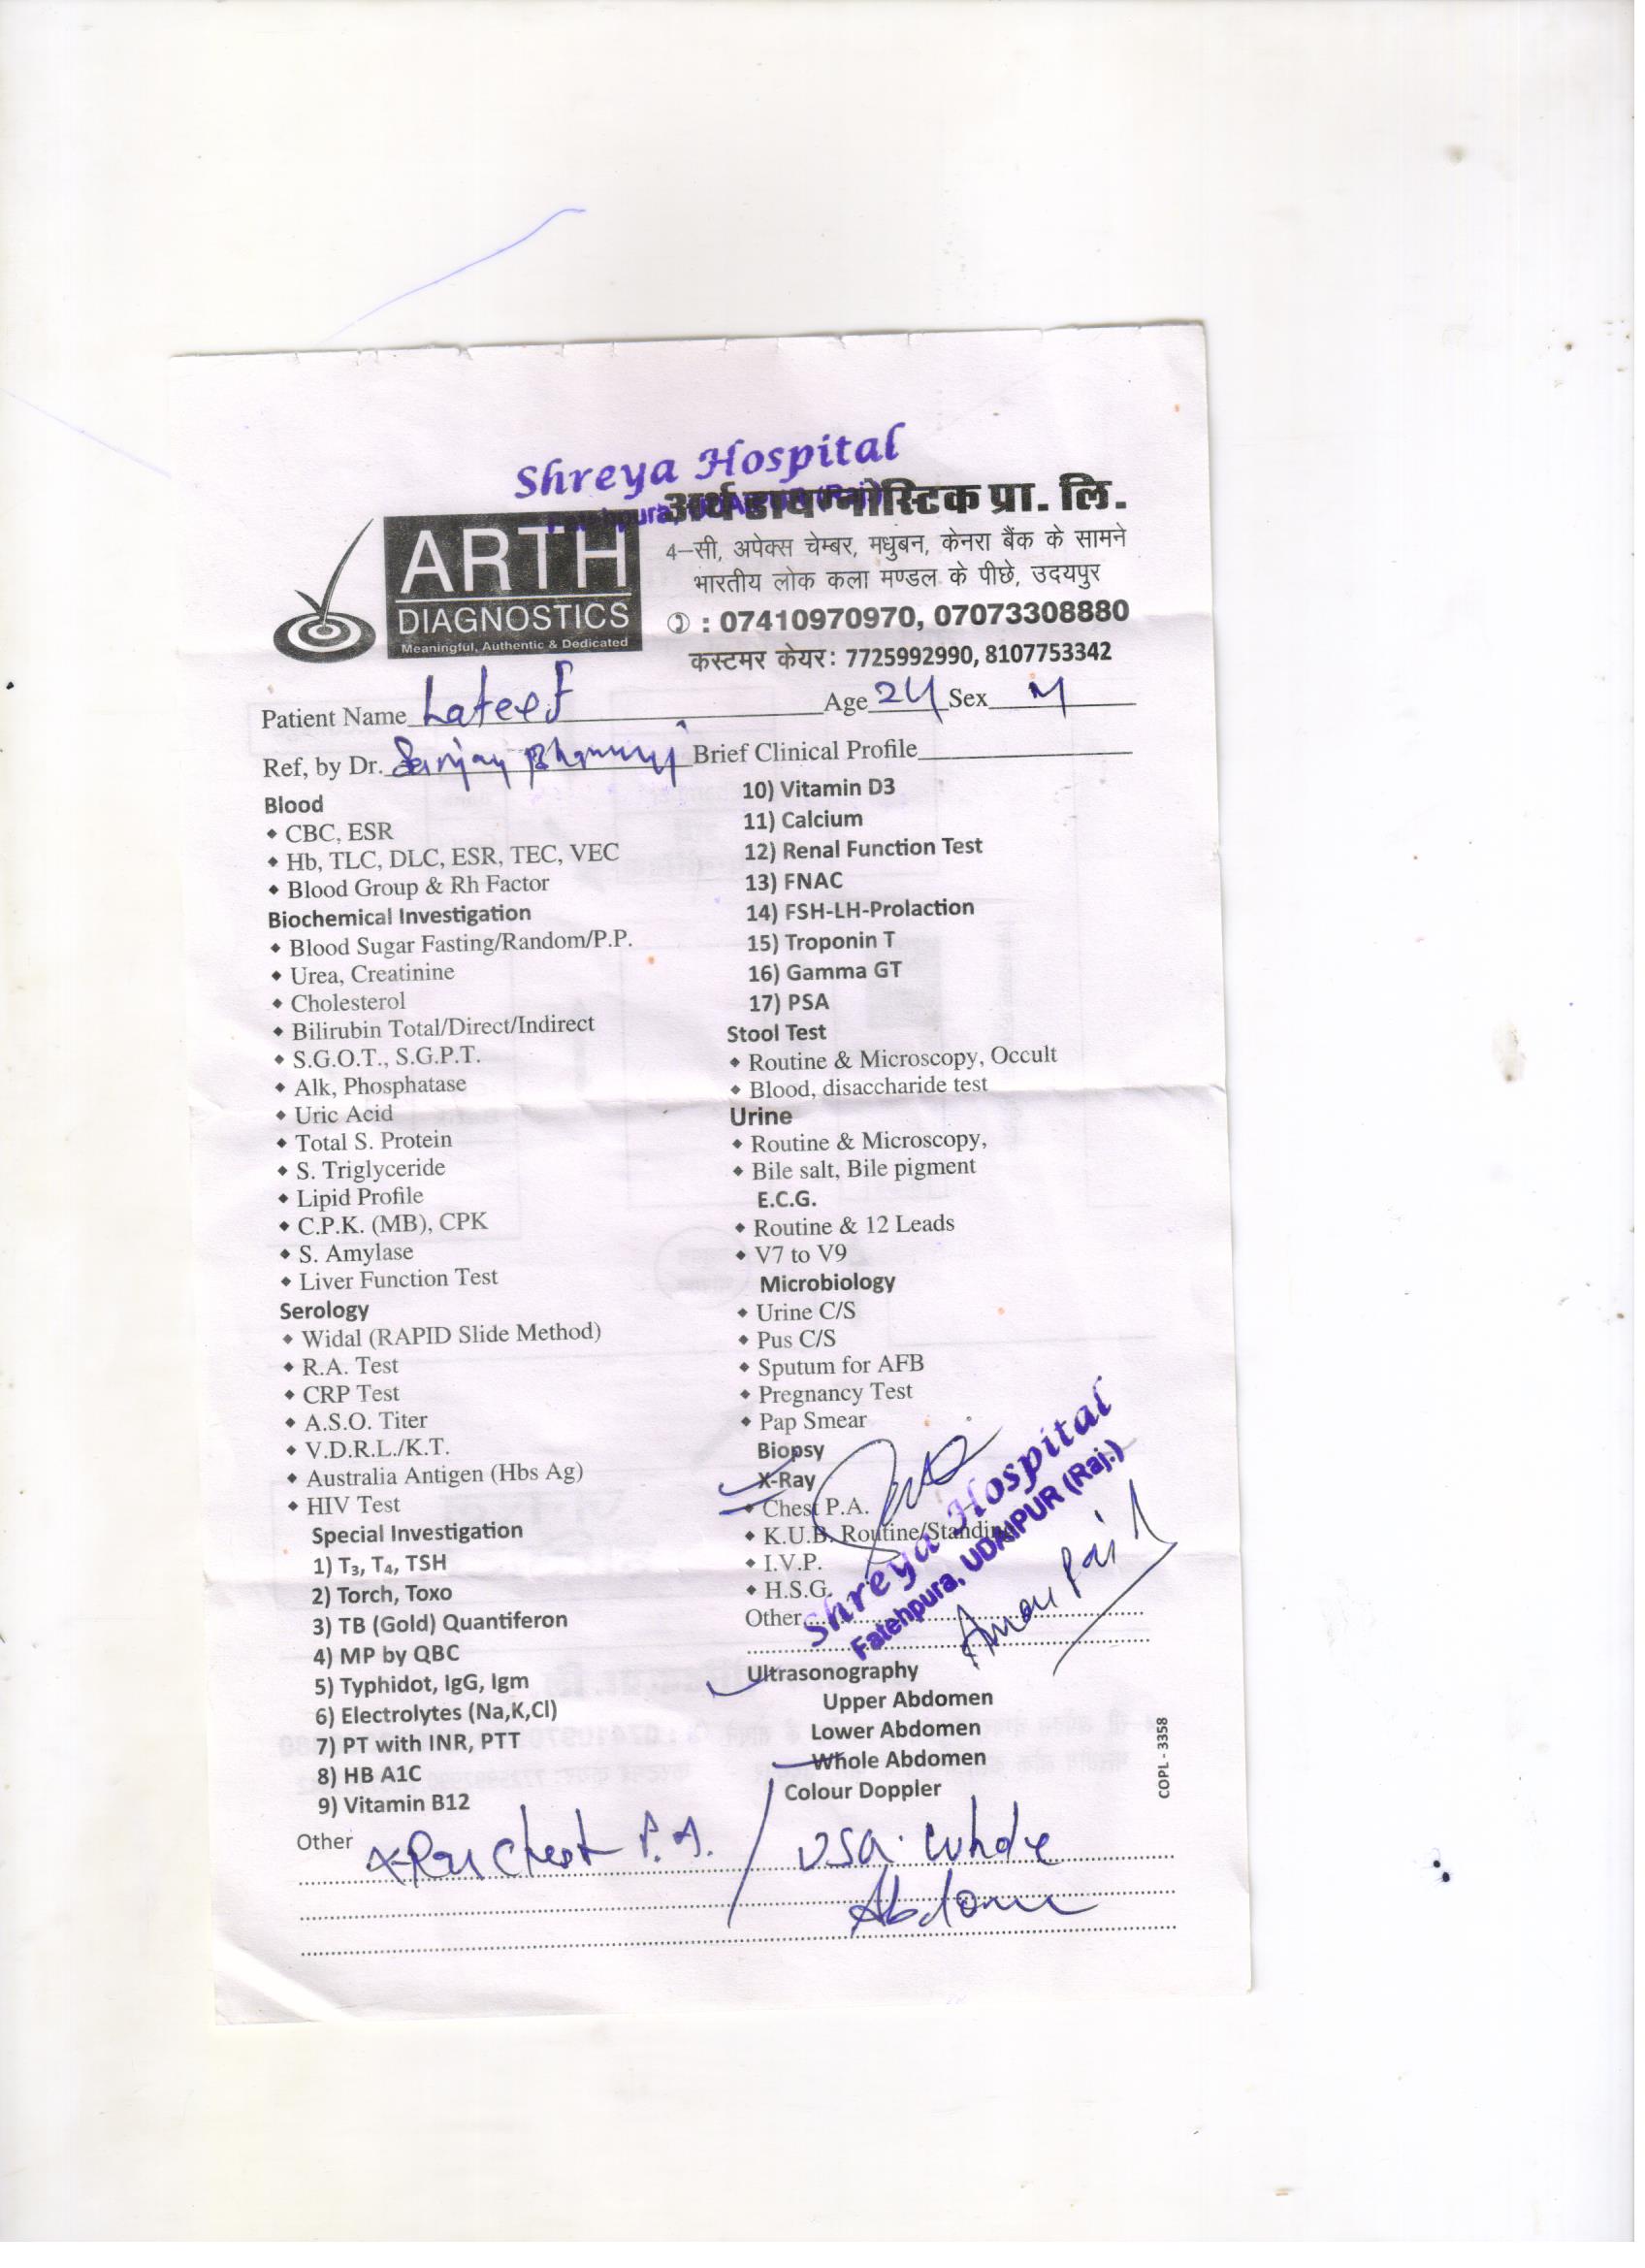 Shreya Hospital
अर्थ डायग्नोस्टिक प्रा. लि.
ARTH
DIAGNOSTICS
Meaningful, Authentic & Dedicated
4–सी, अपेक्स चेम्बर, मधुबन, केनरा बैंक के सामने
भारतीय लोक कला मण्डल के पीछे, उदयपुर
: 07410970970, 07073308880
कस्टमर केयर: 7725992990, 8107753342
Patient Name Lateef Age 24 Sex M
Ref, by Dr. Sanjay Brief Clinical Profile
Blood
CBC, ESR
Hb, TLC, DLC, ESR, TEC, VEC
Blood Group & Rh Factor
Biochemical Investigation
Blood Sugar Fasting/Random/P.P.
Urea, Creatinine
Cholesterol
Bilirubin Total/Direct/Indirect
S.G.O.T., S.G.P.T.
Alk, Phosphatase
Uric Acid
Total S. Protein
S. Triglyceride
Lipid Profile
C.P.K. (MB), CPK
S. Amylase
Liver Function Test
Serology
Widal (RAPID Slide Method)
R.A. Test
CRP Test
A.S.O. Titer
V.D.R.L./K.T.
Australia Antigen (Hbs Ag)
HIV Test
Special Investigation
1) T₃, T₄, TSH
2) Torch, Toxo
3) TB (Gold) Quantiferon
4) MP by QBC
5) Typhidot, IgG, Igm
6) Electrolytes (Na,K,Cl)
7) PT with INR, PTT
8) HB A1C
9) Vitamin B12
10) Vitamin D3
11) Calcium
12) Renal Function Test
13) FNAC
14) FSH-LH-Prolaction
15) Troponin T
16) Gamma GT
17) PSA
Stool Test
Routine & Microscopy, Occult
Blood, disaccharide test
Urine
Routine & Microscopy,
Bile salt, Bile pigment
E.C.G.
Routine & 12 Leads
V7 to V9
Microbiology
Urine C/S
Pus C/S
Sputum for AFB
Pregnancy Test
Pap Smear
Biopsy
X-Ray
Chest P.A.
K.U.B. Routine/Standing
I.V.P.
H.S.G.
Other
Shreya Hospital
Fatehpura, UDAIPUR (Raj.)
Ultrasonography
Upper Abdomen
Lower Abdomen
Whole Abdomen
Colour Doppler
COPL - 3358
Other X-Ray Chest P.A. / USG. Whole
Abdomen